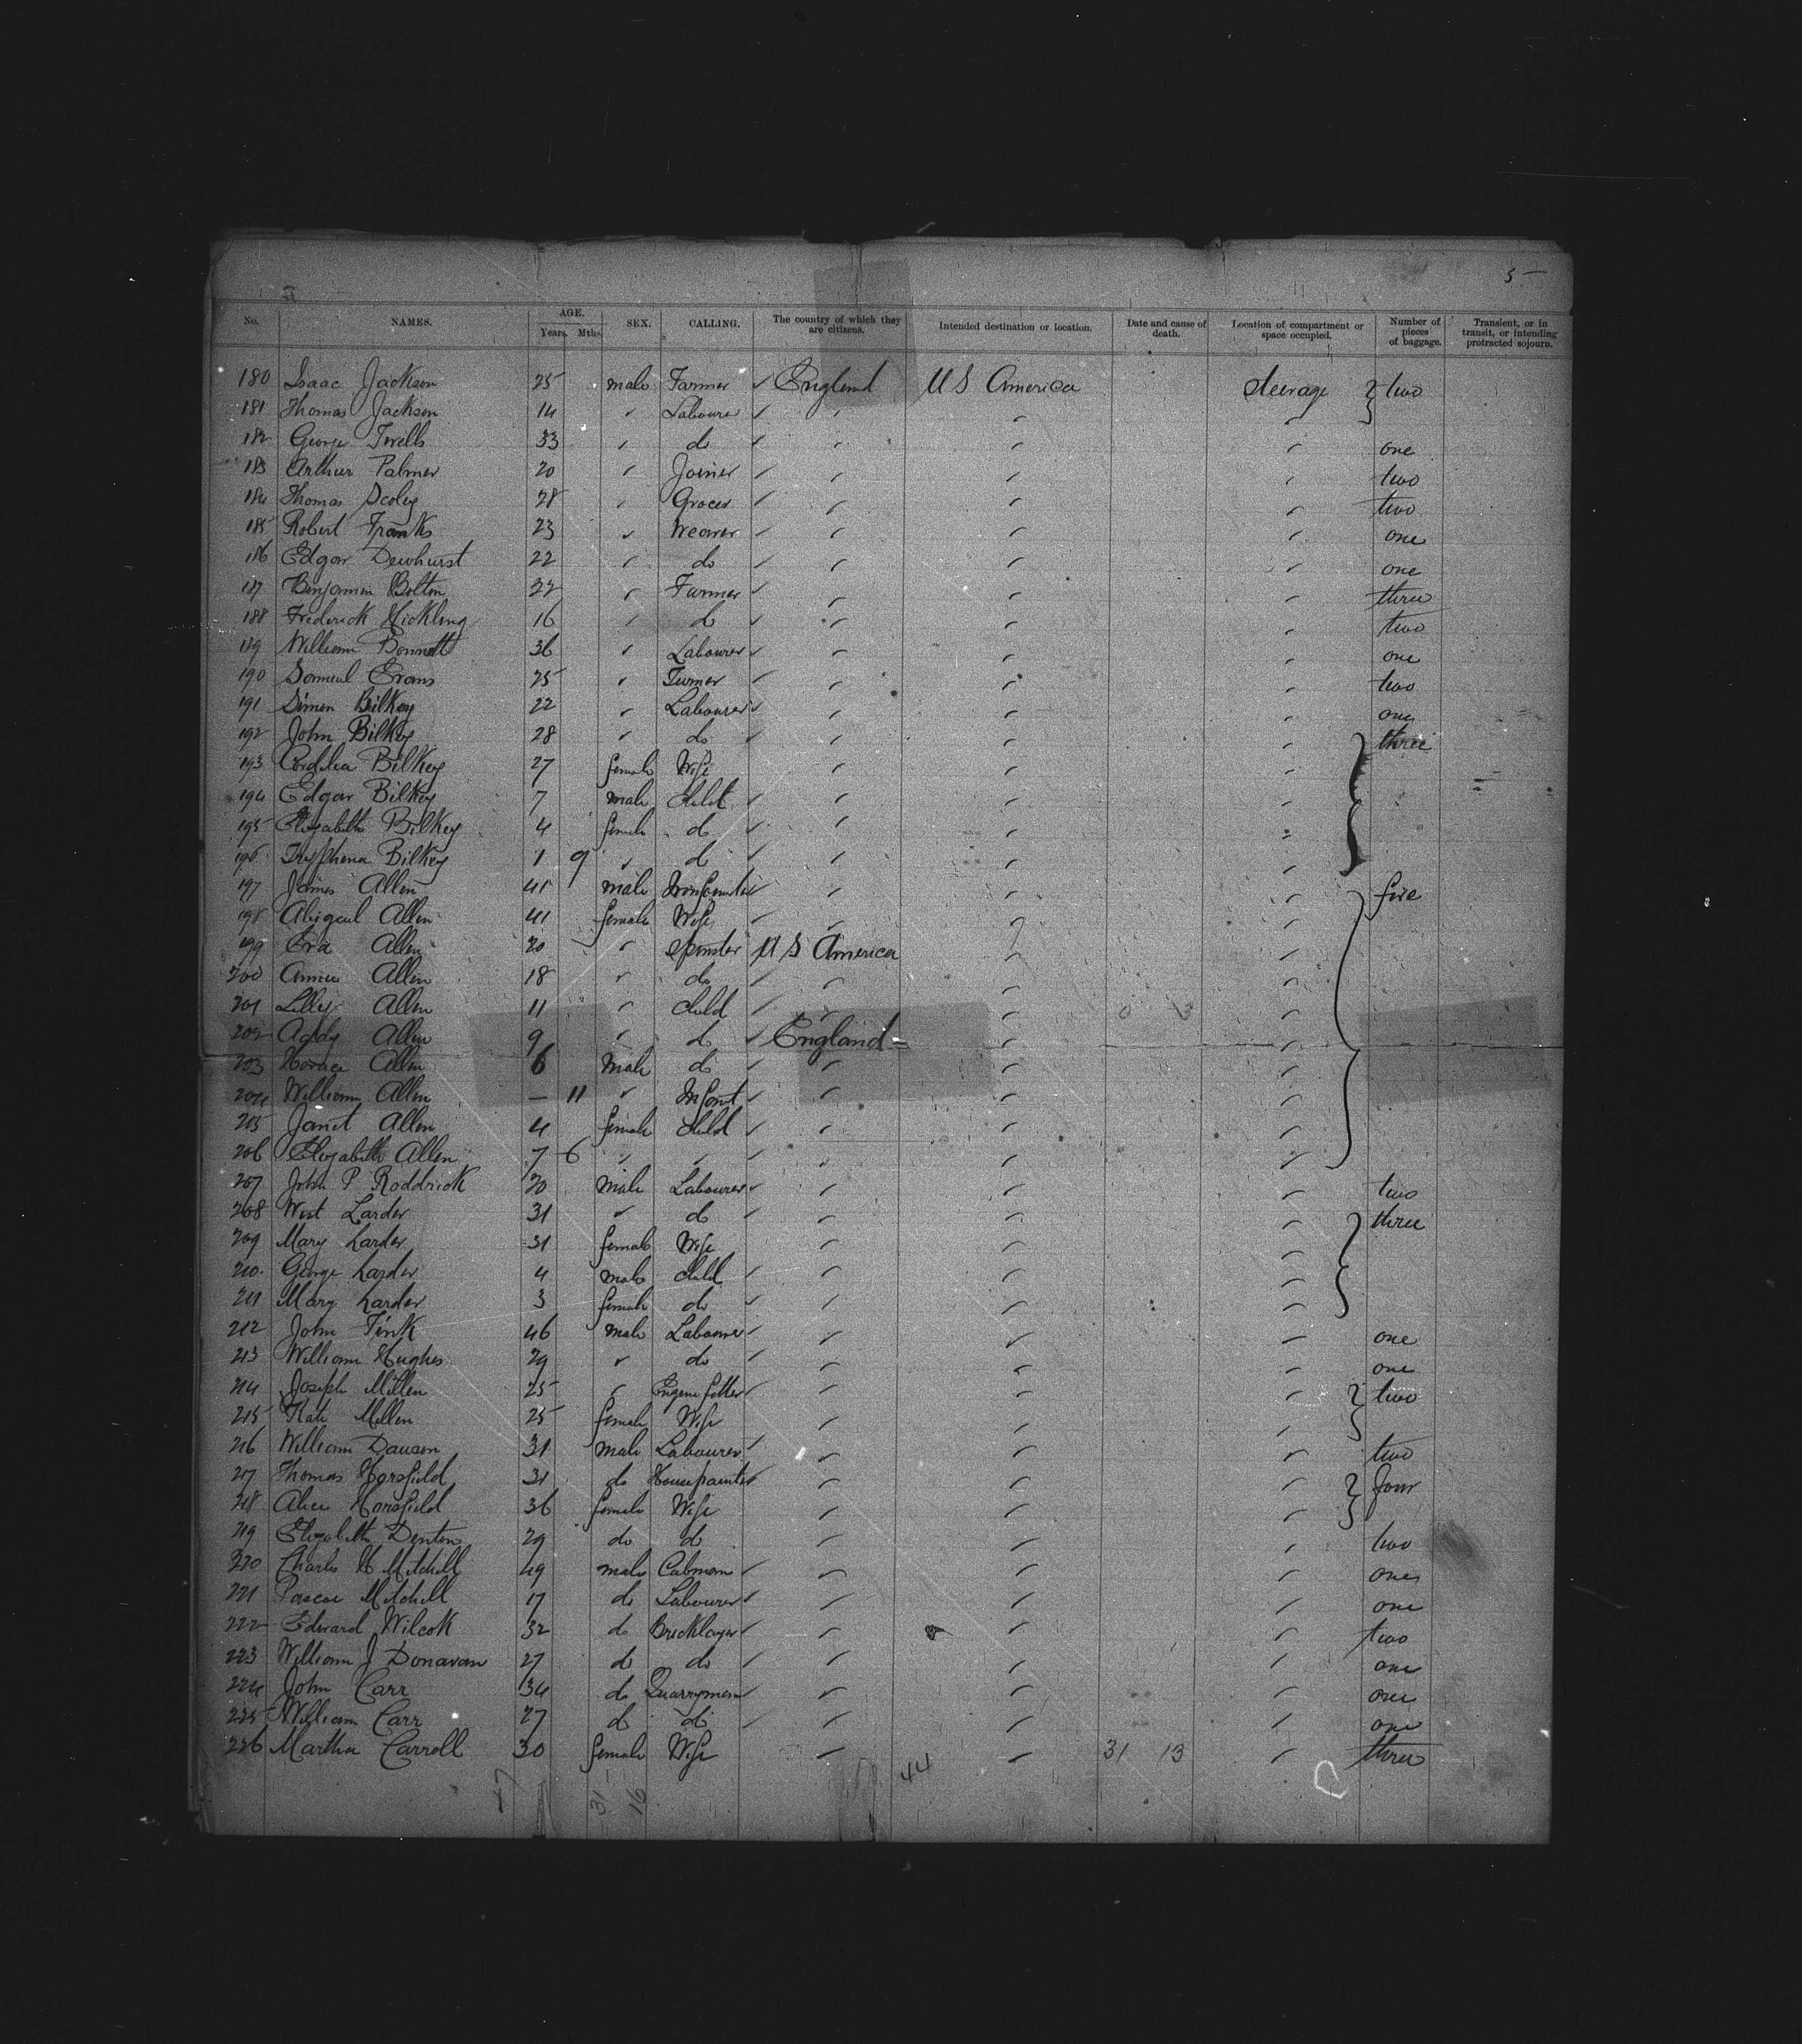 5
No. NAMES. AGE. Years. Mths. SEX. CALLING. The country of which they are citizens. Intended destination or location. Date and cause of death. Location of compartment or space occupied. Number of pieces of baggage. Transient, or in transit, or intending protracted sojourn.
180 Isaac Jackson 25 male Farmer England U S America Steerage two
181 Thomas Jackson 14 " Labourer " " "
182 George Twells 33 " do " " " one
183 Arthur Palmer 20 " Joiner " " " two
184 Thomas Scoley 28 " Grocer " " " two
185 Robert Franks 23 " Weaver " " " one
186 Edgar Dewhurst 22 " do " " " one
187 Benjamin Bolton 22 " Farmer " " " three
188 Frederick Hickling 16 " do " " " two
189 William Bonnett 36 " Labourer " " " one
190 Samuel Evans 25 " Turner " " " two
191 Simon Bilkey 22 " Labourer " " " one
192 John Bilkey 28 " do " " " three
193 Cordelia Bilkey 27 female Wife " " "
194 Edgar Bilkey 7 male child " " "
195 Elizabeth Bilkey 4 female do " " "
196 Tryphena Bilkey 1 9 " do " " "
197 James Allen 45 male " " " five
198 Abigail Allen 41 female Wife " " "
199 Eva Allen 20 " Spinster U S America " "
200 Annie Allen 18 " do " " "
201 Lilley Allen 11 " child " " 0 3 "
202 Addy Allen 9 " do England " "
203 Horace Allen 6 Male do " " "
204 William Allen — 11 " Infant " " "
205 Janet Allen 4 female child " " "
206 Elizabeth Allen 7 6 " " " " "
207 John P Roddrick 20 male Labourer " " " two
208 West Larder 31 " do " " " three
209 Mary Larder 31 female Wife " " "
210 George Larder 4 male child " " "
211 Mary Larder 3 female do " " "
212 John Fink 46 male Labourer " " " one
213 William Hughes 29 " do " " " one
214 Joseph Millen 25 " Engine fitter " " " two
215 Kate Millen 25 female Wife " " "
216 William Dawson 31 male Labourer " " " two
217 Thomas Horsfield 31 do Housepainter " " " four
218 Alice Horsfield 36 female Wife " " "
219 Elizabeth Denton 29 do do " " " two
220 Charles H Mitchell 49 male Cabman " " " one
221 Pascoe Mitchell 17 do Labourer " " " one
222 Edward Wilcok 32 do Bricklayer " " " two
223 William J Donavan 27 do do " " " one
224 John Carr 34 do Quarryman " " " one
225 William Carr 27 do do " " " one
226 Martha Carroll 30 female Wife " " 31 13 " three
47 31 16 44